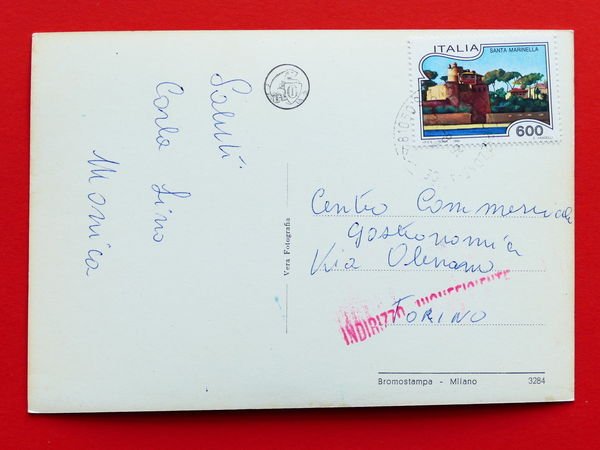 Saluti
Carla Lino
Monica
Vera Fotografia
ITALIA
SANTA MARINELLA
600
Centro Commerciale
Gastronomica
Via
TORINO
INDIRIZZO INSUFFICIENTE
Bromostampa - Milano
3284